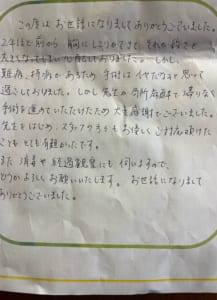 この度は お世話になりましてありがとうございました。
2年ほど前から 胸にしこりができて、それが段々
大きくなってしまい心配しておりました。しかし、
難病、持病もあるため 手術はイヤだなぁと思って
過ごしておりました。しかし先生が局所麻酔で 帰りなく
手術を進めていただけたため 大変感謝でございました。
先生をはじめ、スタッフの方々もお優しく ご対応頂けた
こともとても有難かったです。
また 消毒や 経過観察にも伺いますので、
どうかよろしくお願いいたします。 お世話になりまして
ありがとうございました。